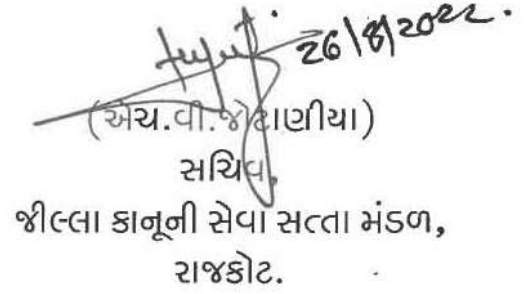 26/8/2022.
(એચ.વી.જોટાણીયા)
સચિવ,
જીલ્લા કાનૂની સેવા સત્તા મંડળ,
રાજકોટ.